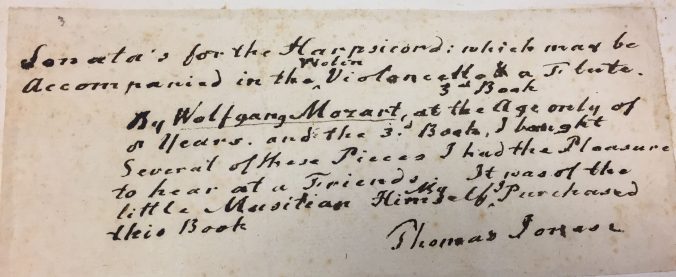 Sonata's for the Harpsicord: which may be
Wolin
accompanied in the ^ Violoncello & a Flute.
3d Book
By Wolfgang Mozart, at the Age only of
8 Years. and the 3.d Book, I bought
Several of these Pieces I had the Pleasure
to hear at a Friends. It was of the
little Musitian Himself, My I Purchased
this Book
Thomas